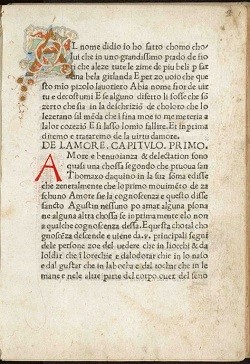 AL nome didio io ho fatto chomo cho
lui che in uno grandissimo prado de fio
ri che aleze tutte le zime de piu beli p far
una bela girlanda E per zo uoio che que
sto mio pizolo lauoriero Abia nome fior de uir
tu e de costumi E se alguno difecto li fosse che sò
zerto che sia in la deschriziõ de choloro che lo
lezerano sal mẽda che i fina moe to me meteria a
la lor corezió E si lasso lomio fallire. Et in prima
diremo e trataremo de la uirtu damore.
DE LAMORE, CAPITVLO, PRIMO,
AMore e beniuolnza & delectation sono
quasi una chossa segondo che pruoua san
Thomaxo daquino in la sua soma edisse
che zeneralmente che lo primo mouimẽto de za
schuno Amore sie la cognoscenza e questo disse
sancto Agustin nessuno po amar alguna cho
ne alguna altra chossa se in prima mente elo non
a qualche cognoscenza dessa. Equesta chotal cho
gnoscẽza descende e uiene da .v. principali segni
dele persone zoe del uedere che in liocchi & da
loldir che ilorechie e dalodorar che in lo naso
e dal gustar che in la bocha e dal tochar che in le
mane e nele altre parte del corpo ouer del seno